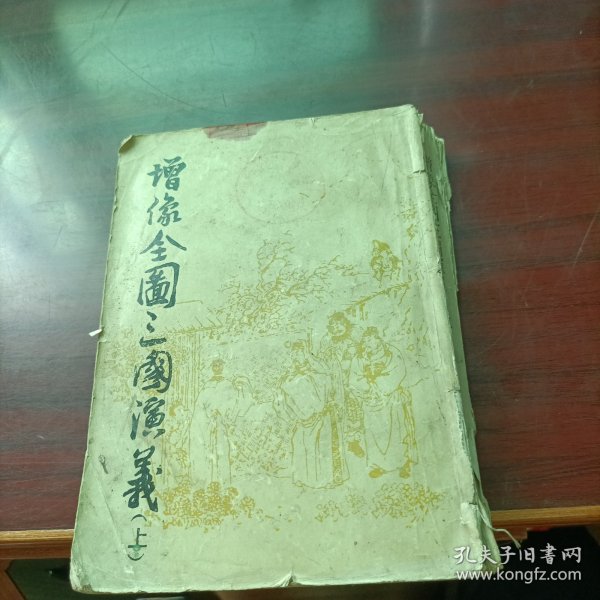 增像全圖三國演義(上)
孔夫子旧书网
www.kongfz.com